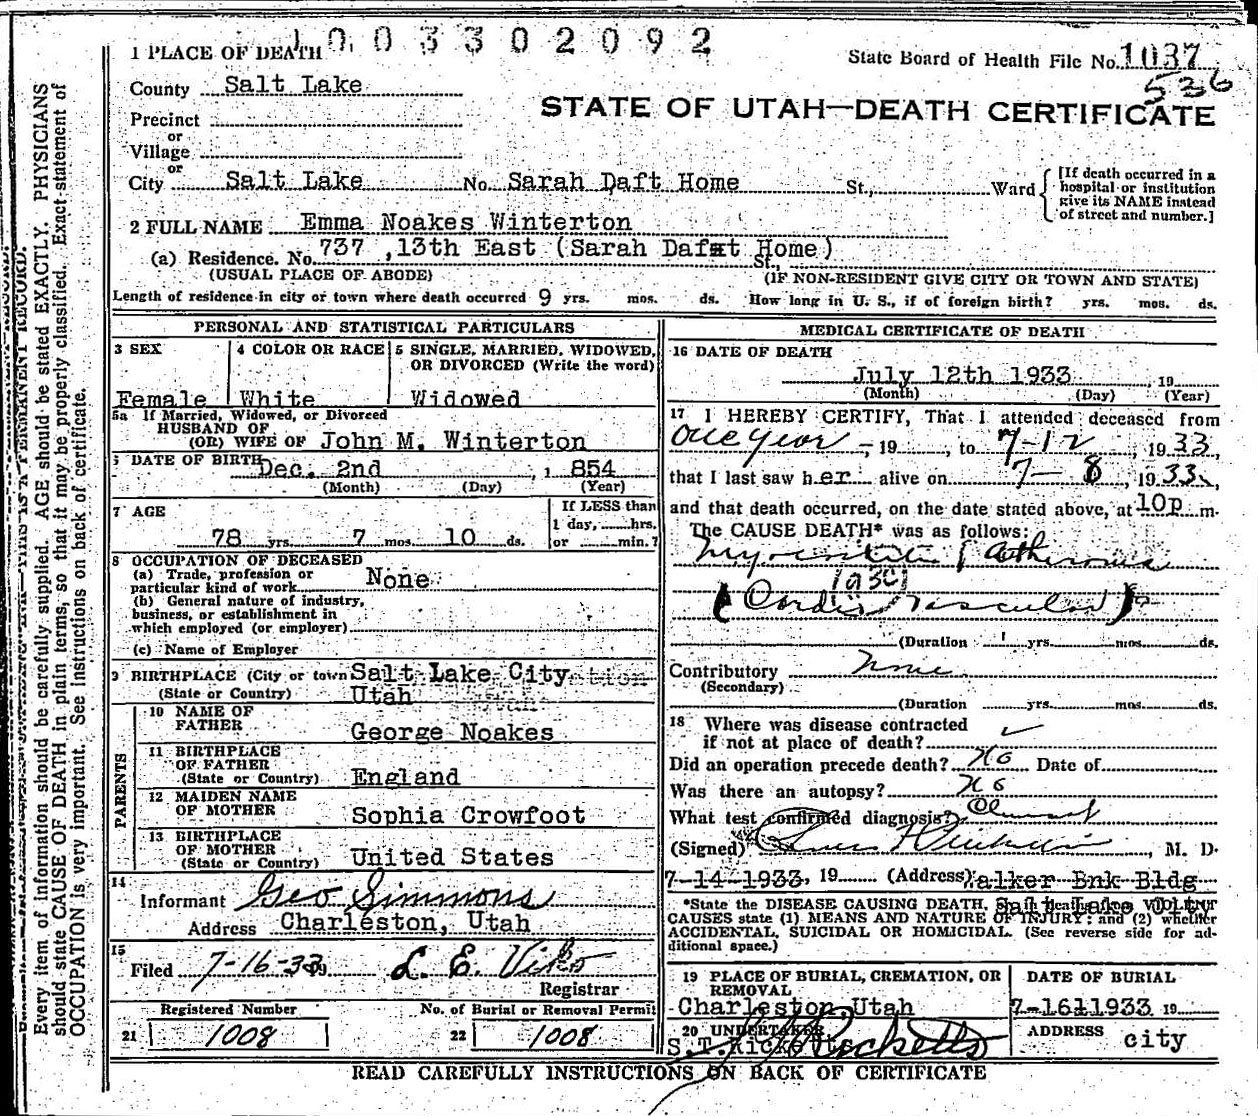 1003302092
1 PLACE OF DEATH
State Board of Health File No. 1037
536
County Salt Lake
STATE OF UTAH—DEATH CERTIFICATE
Precinct
or
Village
or
City Salt Lake No. Sarah Daft Home St., Ward
[If death occurred in a
hospital or institution
give its NAME instead
of street and number.]
2 FULL NAME Emma Noakes Winterton
(a) Residence. No. 737 ,13th East (Sarah Dafxt Home) St.,
(USUAL PLACE OF ABODE) (IF NON-RESIDENT GIVE CITY OR TOWN AND STATE)
Length of residence in city or town where death occurred 9 yrs. mos. ds. How long in U. S., if of foreign birth? yrs. mos. ds.
PERSONAL AND STATISTICAL PARTICULARS
3 SEX
Female
4 COLOR OR RACE
White
5 SINGLE, MARRIED, WIDOWED,
OR DIVORCED (Write the word)
Widowed
5a If Married, Widowed, or Divorced
HUSBAND OF
(OR) WIFE OF John M. Winterton
6 DATE OF BIRTH Dec. 2nd , 1854
(Month) (Day) (Year)
7 AGE
78 yrs. 7 mos. 10 ds.
If LESS than
1 day, hrs.
or min.?
8 OCCUPATION OF DECEASED
(a) Trade, profession or
particular kind of work None
(b) General nature of industry,
business, or establishment in
which employed (or employer)
(c) Name of Employer
9 BIRTHPLACE (City or town Salt Lake City
(State or Country) Utah
PARENTS
10 NAME OF
FATHER George Noakes
11 BIRTHPLACE
OF FATHER
(State or Country) England
12 MAIDEN NAME
OF MOTHER Sophia Crowfoot
13 BIRTHPLACE
OF MOTHER
(State or Country) United States
14
Informant Geo Simmons
Address Charleston, Utah
15
Filed 7-16-33 L. E. Viko
Registrar
Registered Number
21 1008
No. of Burial or Removal Permit
22 1008
MEDICAL CERTIFICATE OF DEATH
16 DATE OF DEATH
July 12th 1933 , 19
(Month) (Day) (Year)
17 I HEREBY CERTIFY, That I attended deceased from
One year , 19 , to 7-12 , 1933,
that I last saw her alive on 7-8 , 1933,
and that death occurred, on the date stated above, at 10p m.
The CAUSE DEATH* was as follows:
Myocarditis Atheroma
(Cardio Vascular)
(Duration 1 yrs. mos. ds.
Contributory None
(Secondary)
(Duration yrs. mos. ds.
18 Where was disease contracted
if not at place of death?
Did an operation precede death? No Date of
Was there an autopsy? No
What test confirmed diagnosis?
(Signed) , M. D.
7-14-1933, 19 (Address) Walker Bnk Bldg
Salt Lake City
*State the DISEASE CAUSING DEATH, VIOLENT
CAUSES state (1) MEANS AND NATURE OF INJURY; and (2) whether
ACCIDENTAL, SUICIDAL OR HOMICIDAL. (See reverse side for ad-
ditional space.)
19 PLACE OF BURIAL, CREMATION, OR
REMOVAL
Charleston, Utah
DATE OF BURIAL
7-16-1933 19
20 UNDERTAKER
S.T.Ricketts Ricketts
ADDRESS
city
READ CAREFULLY INSTRUCTIONS ON BACK OF CERTIFICATE
Every item of information should be carefully supplied. AGE should be stated EXACTLY. PHYSICIANS
should state CAUSE OF DEATH in plain terms, so that it may be properly classified. Exact statement of
OCCUPATION is very important. See instructions on back of certificate.
THIS IS A PERMANENT RECORD.